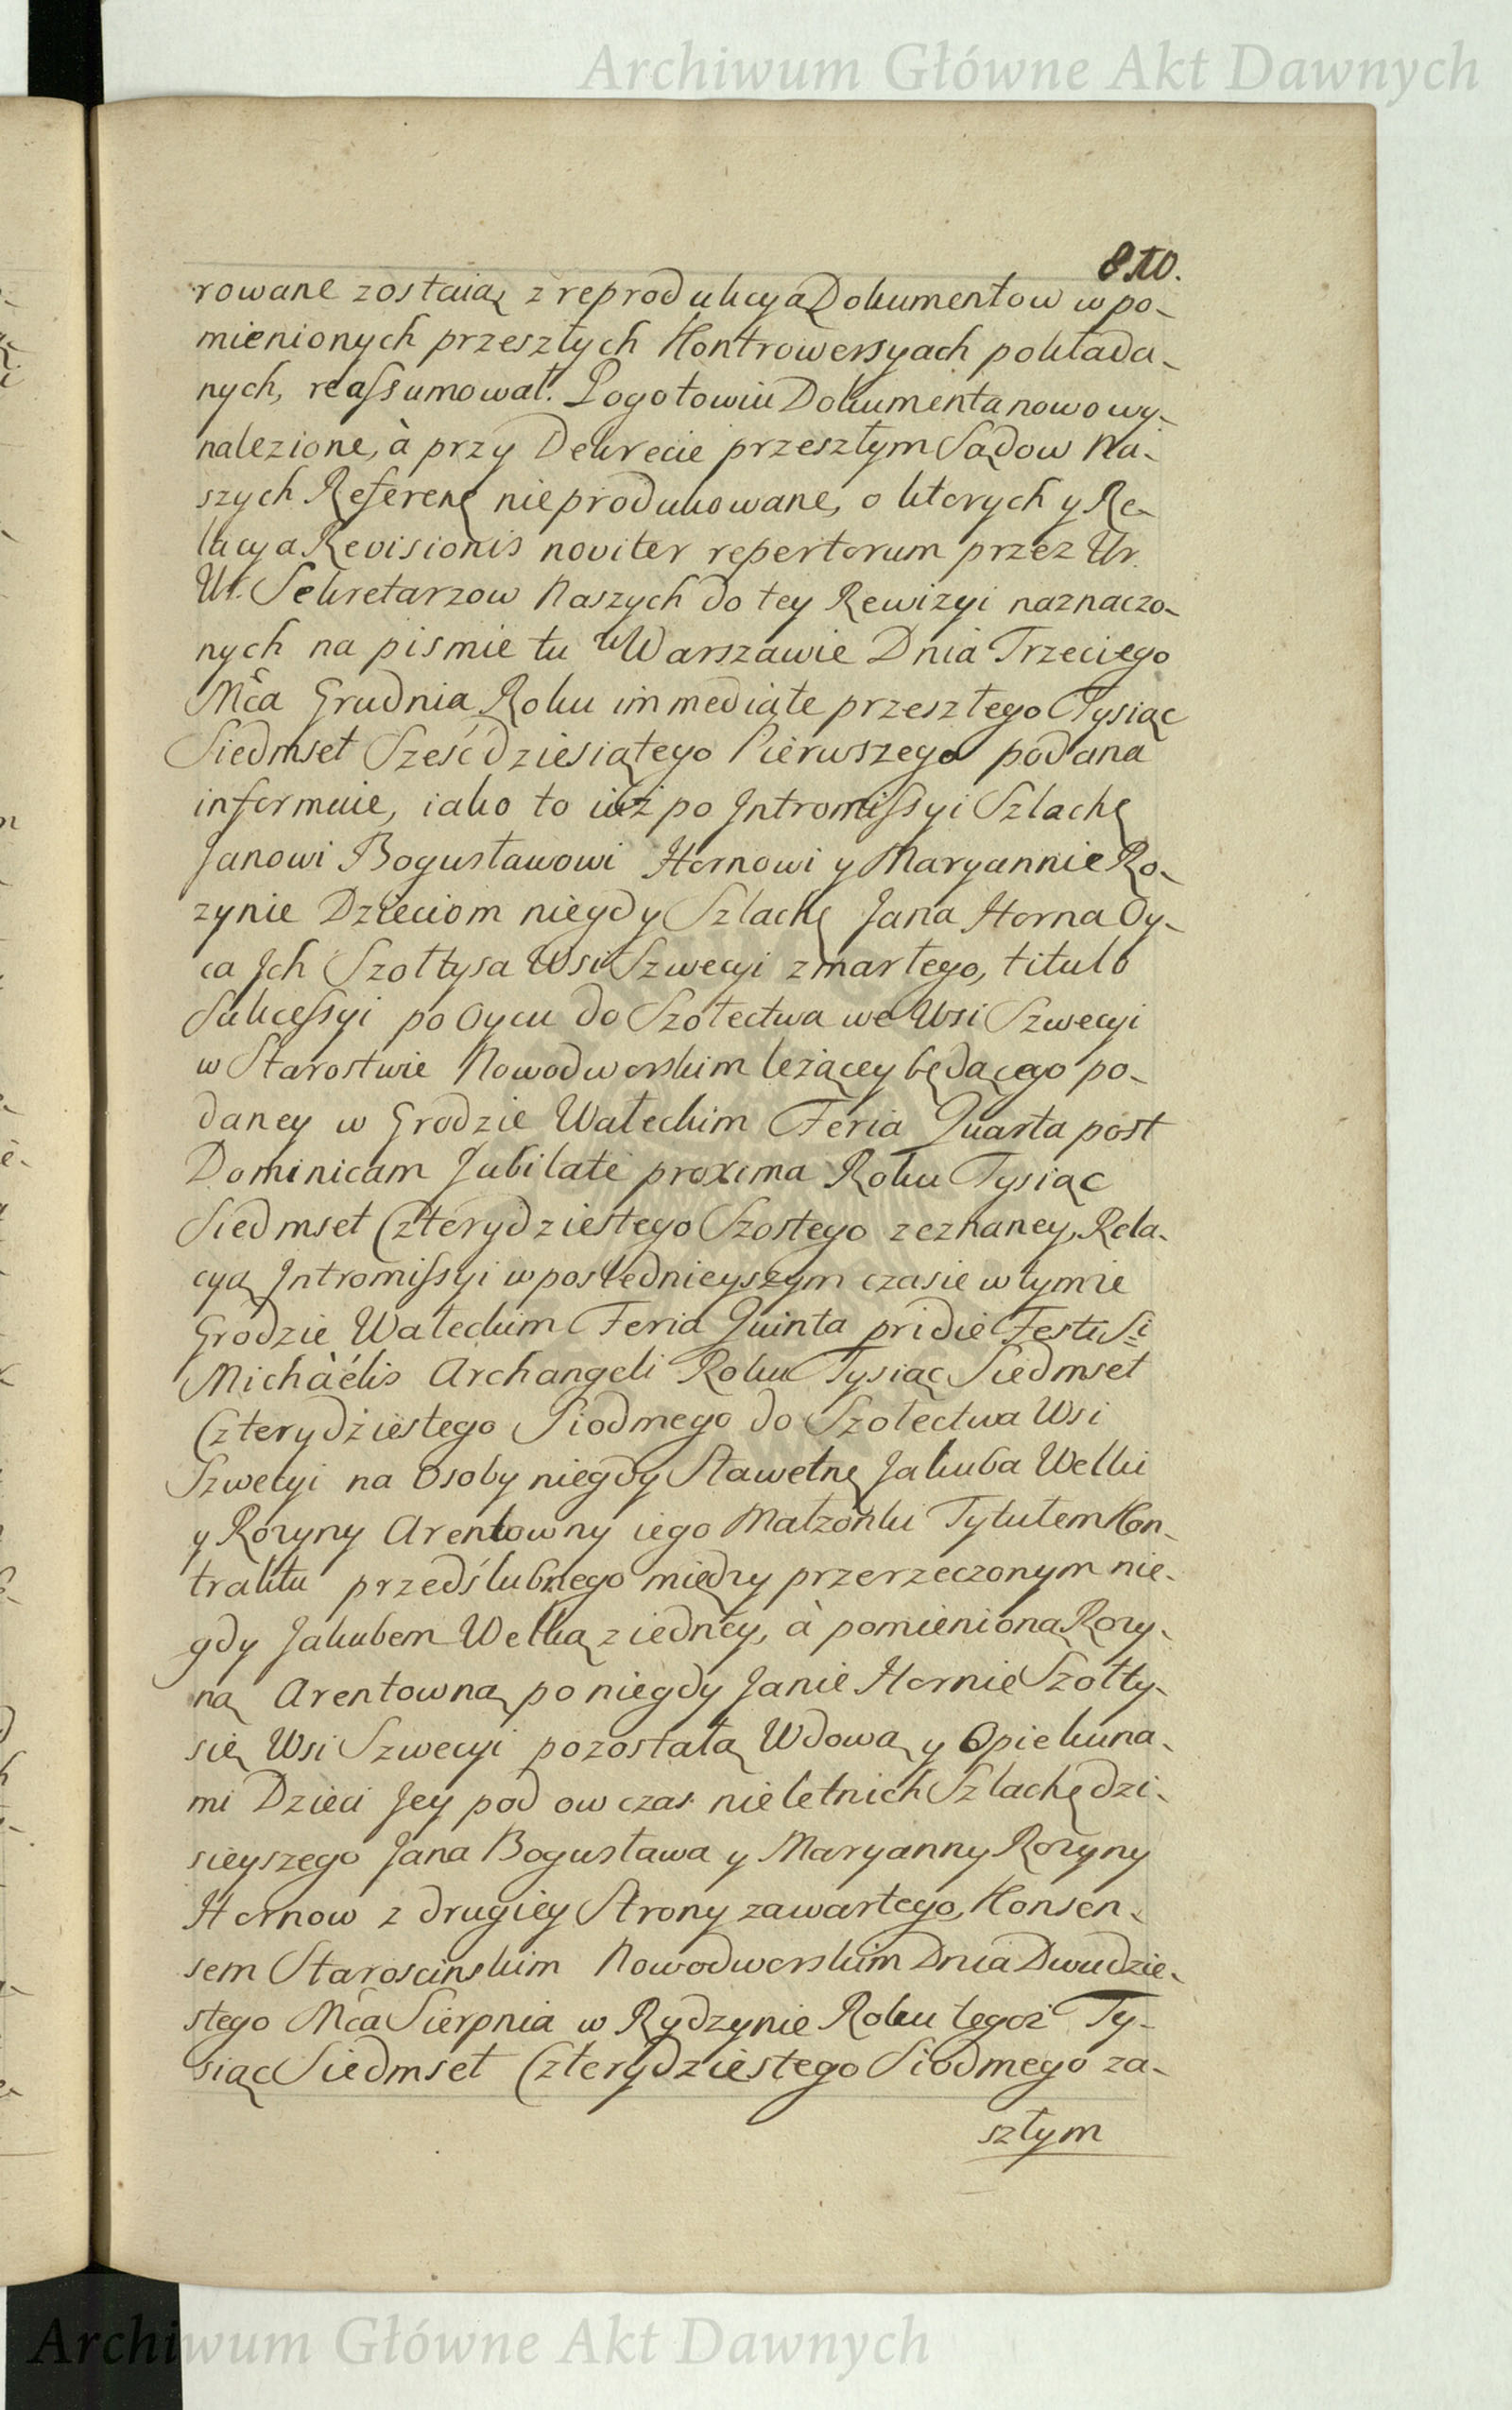 Archiwum Główne Akt Dawnych
810.
rowane zostaią z reprodukcyą Dokumentow w po-
mienionych przeszłych Kontrowersyach pokłada-
nych, reassumował. Pogotowiu Dokumenta nowo wy-
nalezione, à przy Dekrecie przeszłym Sądow Na-
szych Referen nieprodukowane, o ktorych y Re-
lacya Revisionis noviter repertorum przez Ur.
Ur. Sekretarzow Naszych do tey Rewizyi naznaczo-
nych na pismie tu w Warszawie Dnia Trzeciego
Mca Grudnia Roku immediate przeszłego Tysiąc
Siedmset Sześćdziesiątego Pierwszego podana
informuie, iako to iuż po Intromissyi Szlache
Janowi Bogusławowi Hornowi y Maryannie Ro-
zynie Dzieciom niegdy Szlache Jana Horna Oy-
ca Ich Szołtysa Wsi Szwecyi zmarłego, titulo
Sukcessyi po Oycu do Szołectwa we Wsi Szwecyi
w Starostwie Nowodworskim leżącey będącego po-
daney w Grodzie Wałeckim Feria Quarta post
Dominicam Jubilate proxima Roku Tysiąc
Siedmset Czterydziestego Szostego zeznaney, Rela-
cyą Intromissyi w poslednieyszym czasie w tymie
Grodzie Wałeckim Feria Quinta pridie Festi Si
Michàélis Archangeli Roku Tysiąc Siedmset
Czterydżiestego Siodmego do Szołectwa Wsi
Szwecyi na Osoby niegdy Sławetne Jakuba Welki
y Rozyny Arentowny iego Małzonki Tytułem Kon-
traktu przedślubnego między przerzeczonym nie-
gdy Jakubem Welką z iedney, à pomienioną Rozy-
ną Arentowną po niegdy Janie Hornie Szołty-
się Wsi Szwecyi pozostałą Wdową y Opiekuna-
mi Dzieci Jey pod ow czas nieletnich Szlache dzi-
sieyszego Jana Bogusława y Maryanny Rozyny
Hornow z drugiey Strony zawartego, Konsen-
sem Staroscinskim Nowodworskim Dnia Dwudzie-
stego Mca Sierpnia w Rydzynie Roku tegoż Ty-
siąc Siedmset Czterydziestego Siodmego za-
szłym
Archiwum Główne Akt Dawnych